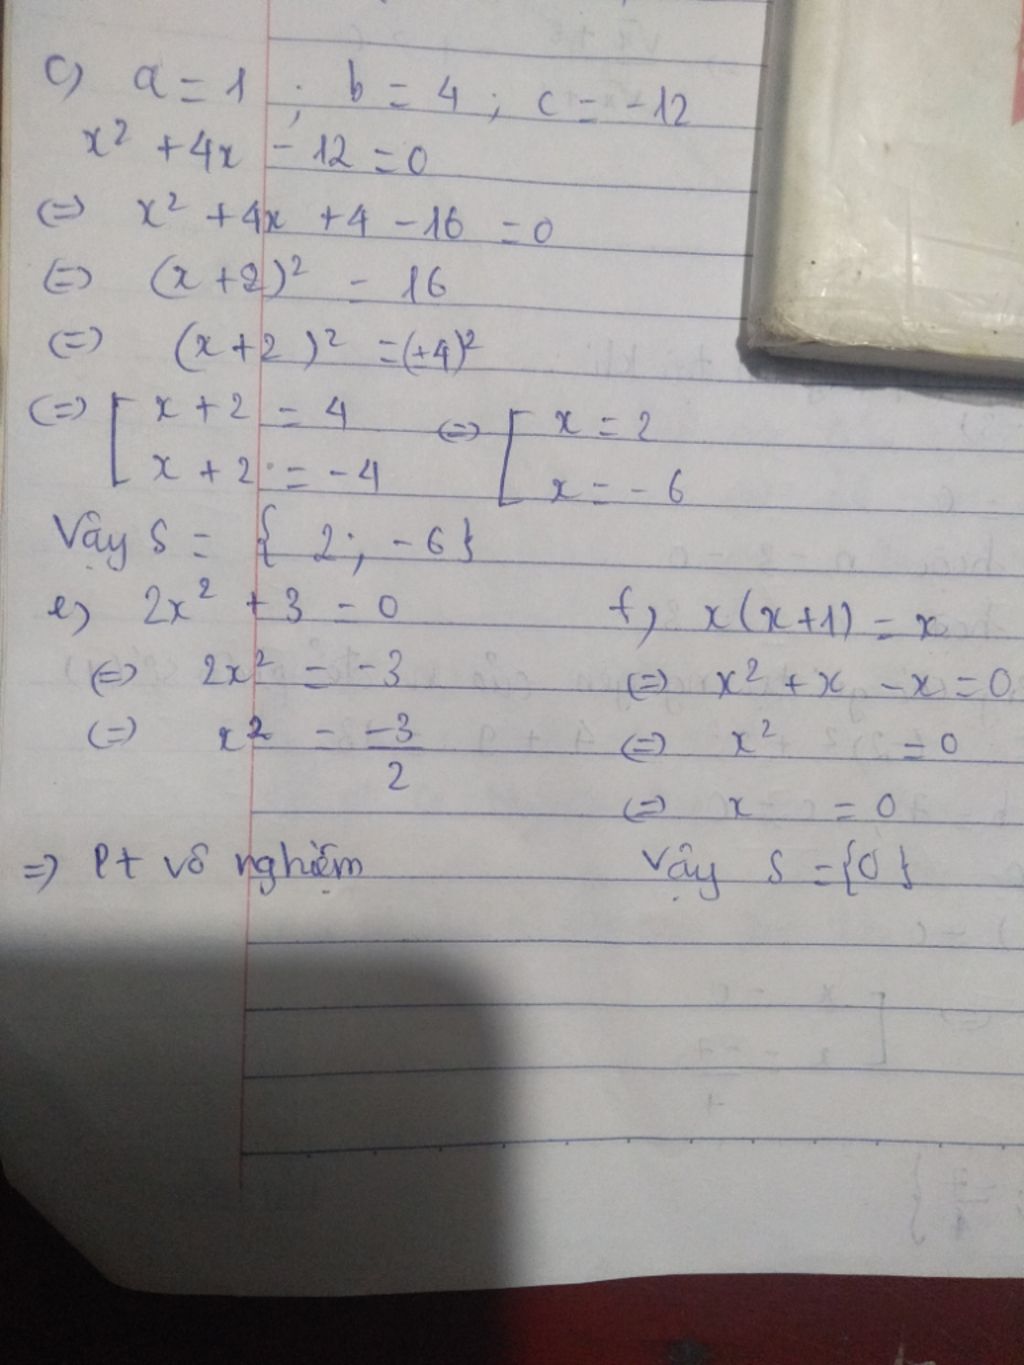 c) a = 1 ; b = 4 ; c = -12
x² + 4x - 12 = 0
(=) x² + 4x + 4 - 16 = 0
(=) (x + 2)² = 16
(=) (x + 2)² = (±4)²
(=) [ x + 2 = 4 (=) [ x = 2
x + 2 = -4 x = -6
Vậy S = { 2 ; -6 }
e) 2x² + 3 = 0
(=) 2x² = -3
(=) x² = -3/2
=) Pt vô nghiệm
f) x(x+1) = x
(=) x² + x - x = 0
(=) x² = 0
(=) x = 0
Vậy S = {0}